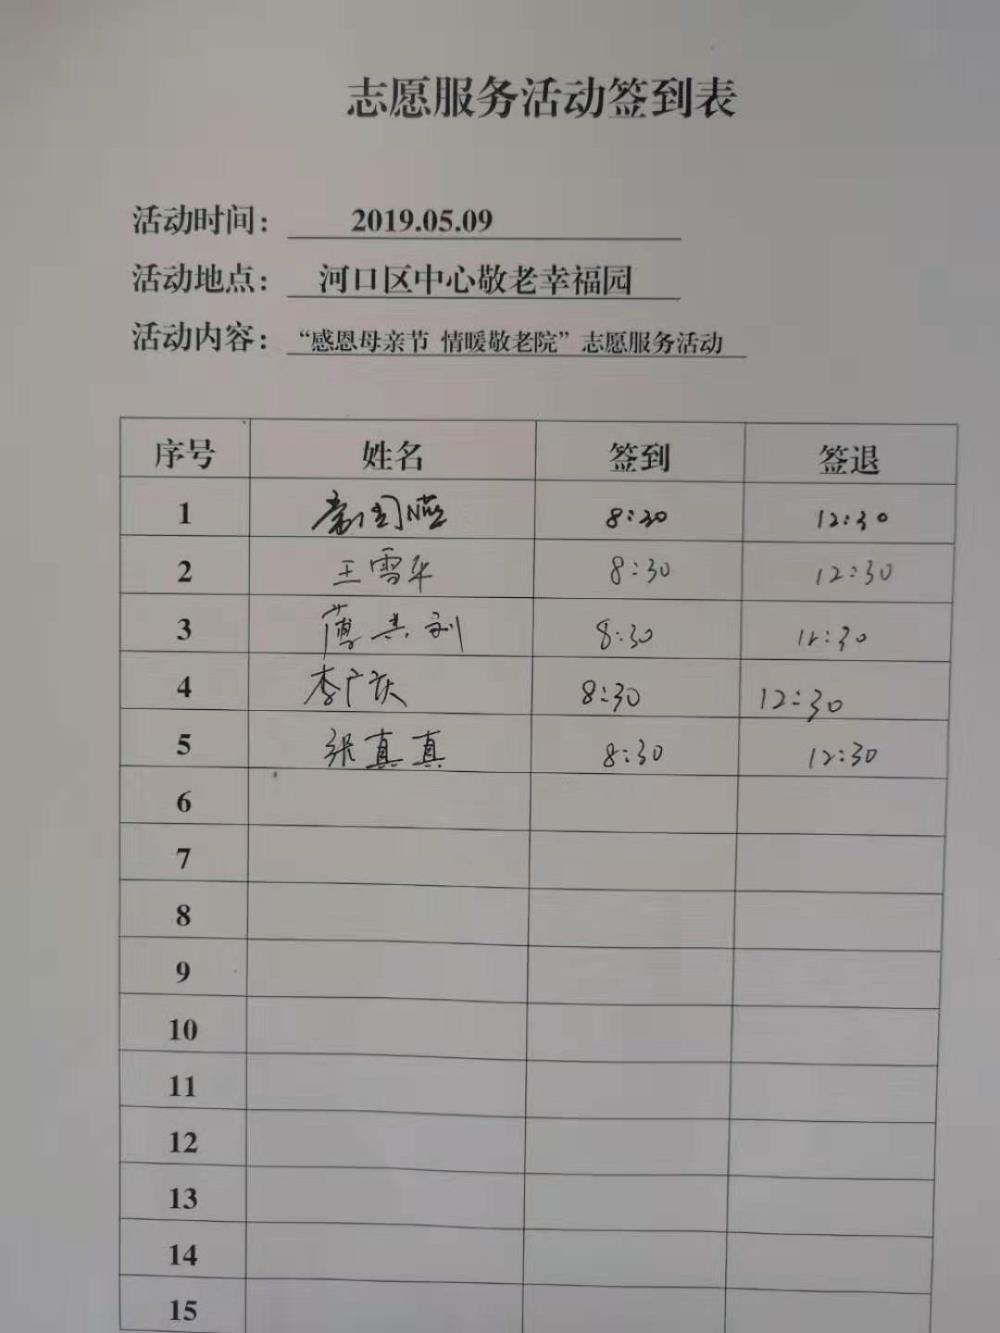 志愿服务活动签到表
活动时间： 2019.05.09
活动地点： 河口区中心敬老幸福园
活动内容： “感恩母亲节 情暖敬老院”志愿服务活动
序号 姓名 签到 签退
1 8:30 12:30
2 王雪华 8:30 12:30
3 薄其利 8:30 12:30
4 李广庆 8:30 12:30
5 张真真 8:30 12:30
6
7
8
9
10
11
12
13
14
15